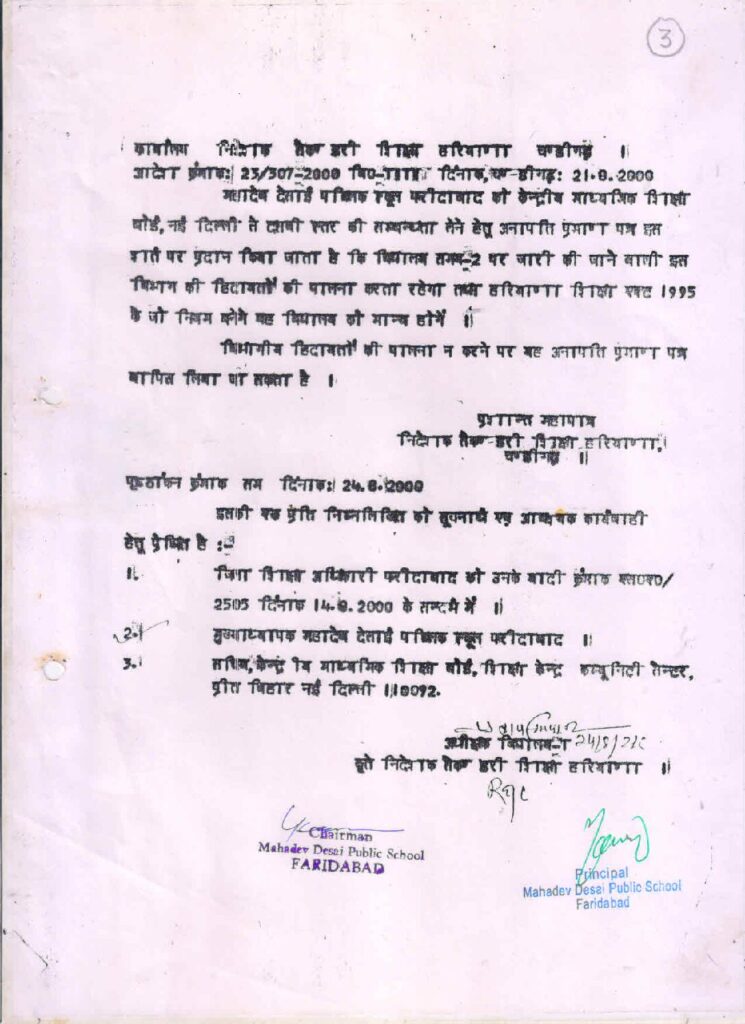 3
कार्यालय निदेशक सैकण्डरी शिक्षा हरियाणा चण्डीगढ़ ।
आदेश क्रमांक: 23/307-2000 दिनांक, चण्डीगढ़: 21.8.2000
महादेव देसाई पब्लिक स्कूल फरीदाबाद को केन्द्रीय माध्यमिक शिक्षा
बोर्ड, नई दिल्ली से दसवीं स्तर की सम्बन्धता लेने हेतु अनापति प्रमाण पत्र इस
शर्त पर प्रदान किया जाता है कि विद्यालय समय-2 पर जारी की जाने वाली इस
विभाग की हिदायतों की पालना करता रहेगा तथा हरियाणा शिक्षा एक्ट 1995
के जो नियम बनेगे वह विद्यालय को मान्य होगें ।
विभागीय हिदायतों की पालना न करने पर यह अनापति प्रमाण पत्र
वापिस लिया जा सकता है ।
प्रशान्त महापात्र
निदेशक सैकण्डरी शिक्षा हरियाणा,
चण्डीगढ़ ।
पृष्ठांकन क्रमांक सम दिनांक: 24.8.2000
इसकी एक प्रति निम्नलिखित को सूचनार्थ एवं आवश्यक कार्यवाही
हेतु प्रेषित है :-
1. जिला शिक्षा अधिकारी फरीदाबाद को उनके यादी क्रमांक एस0ए0/
2505 दिनांक 14.8.2000 के सन्दर्भ में ।
2. मुख्याध्यापक महादेव देसाई पब्लिक स्कूल फरीदाबाद ।
3. सचिव, केन्द्रीय माध्यमिक शिक्षा बोर्ड, शिक्षा केन्द्र कम्यूनिटी सेन्टर,
प्रीत विहार नई दिल्ली 110092.
अधीक्षक विद्यालय-1
कृते निदेशक सैकण्डरी शिक्षा हरियाणा ।
Chairman
Mahadev Desai Public School
FARIDABAD
Principal
Mahadev Desai Public School
Faridabad